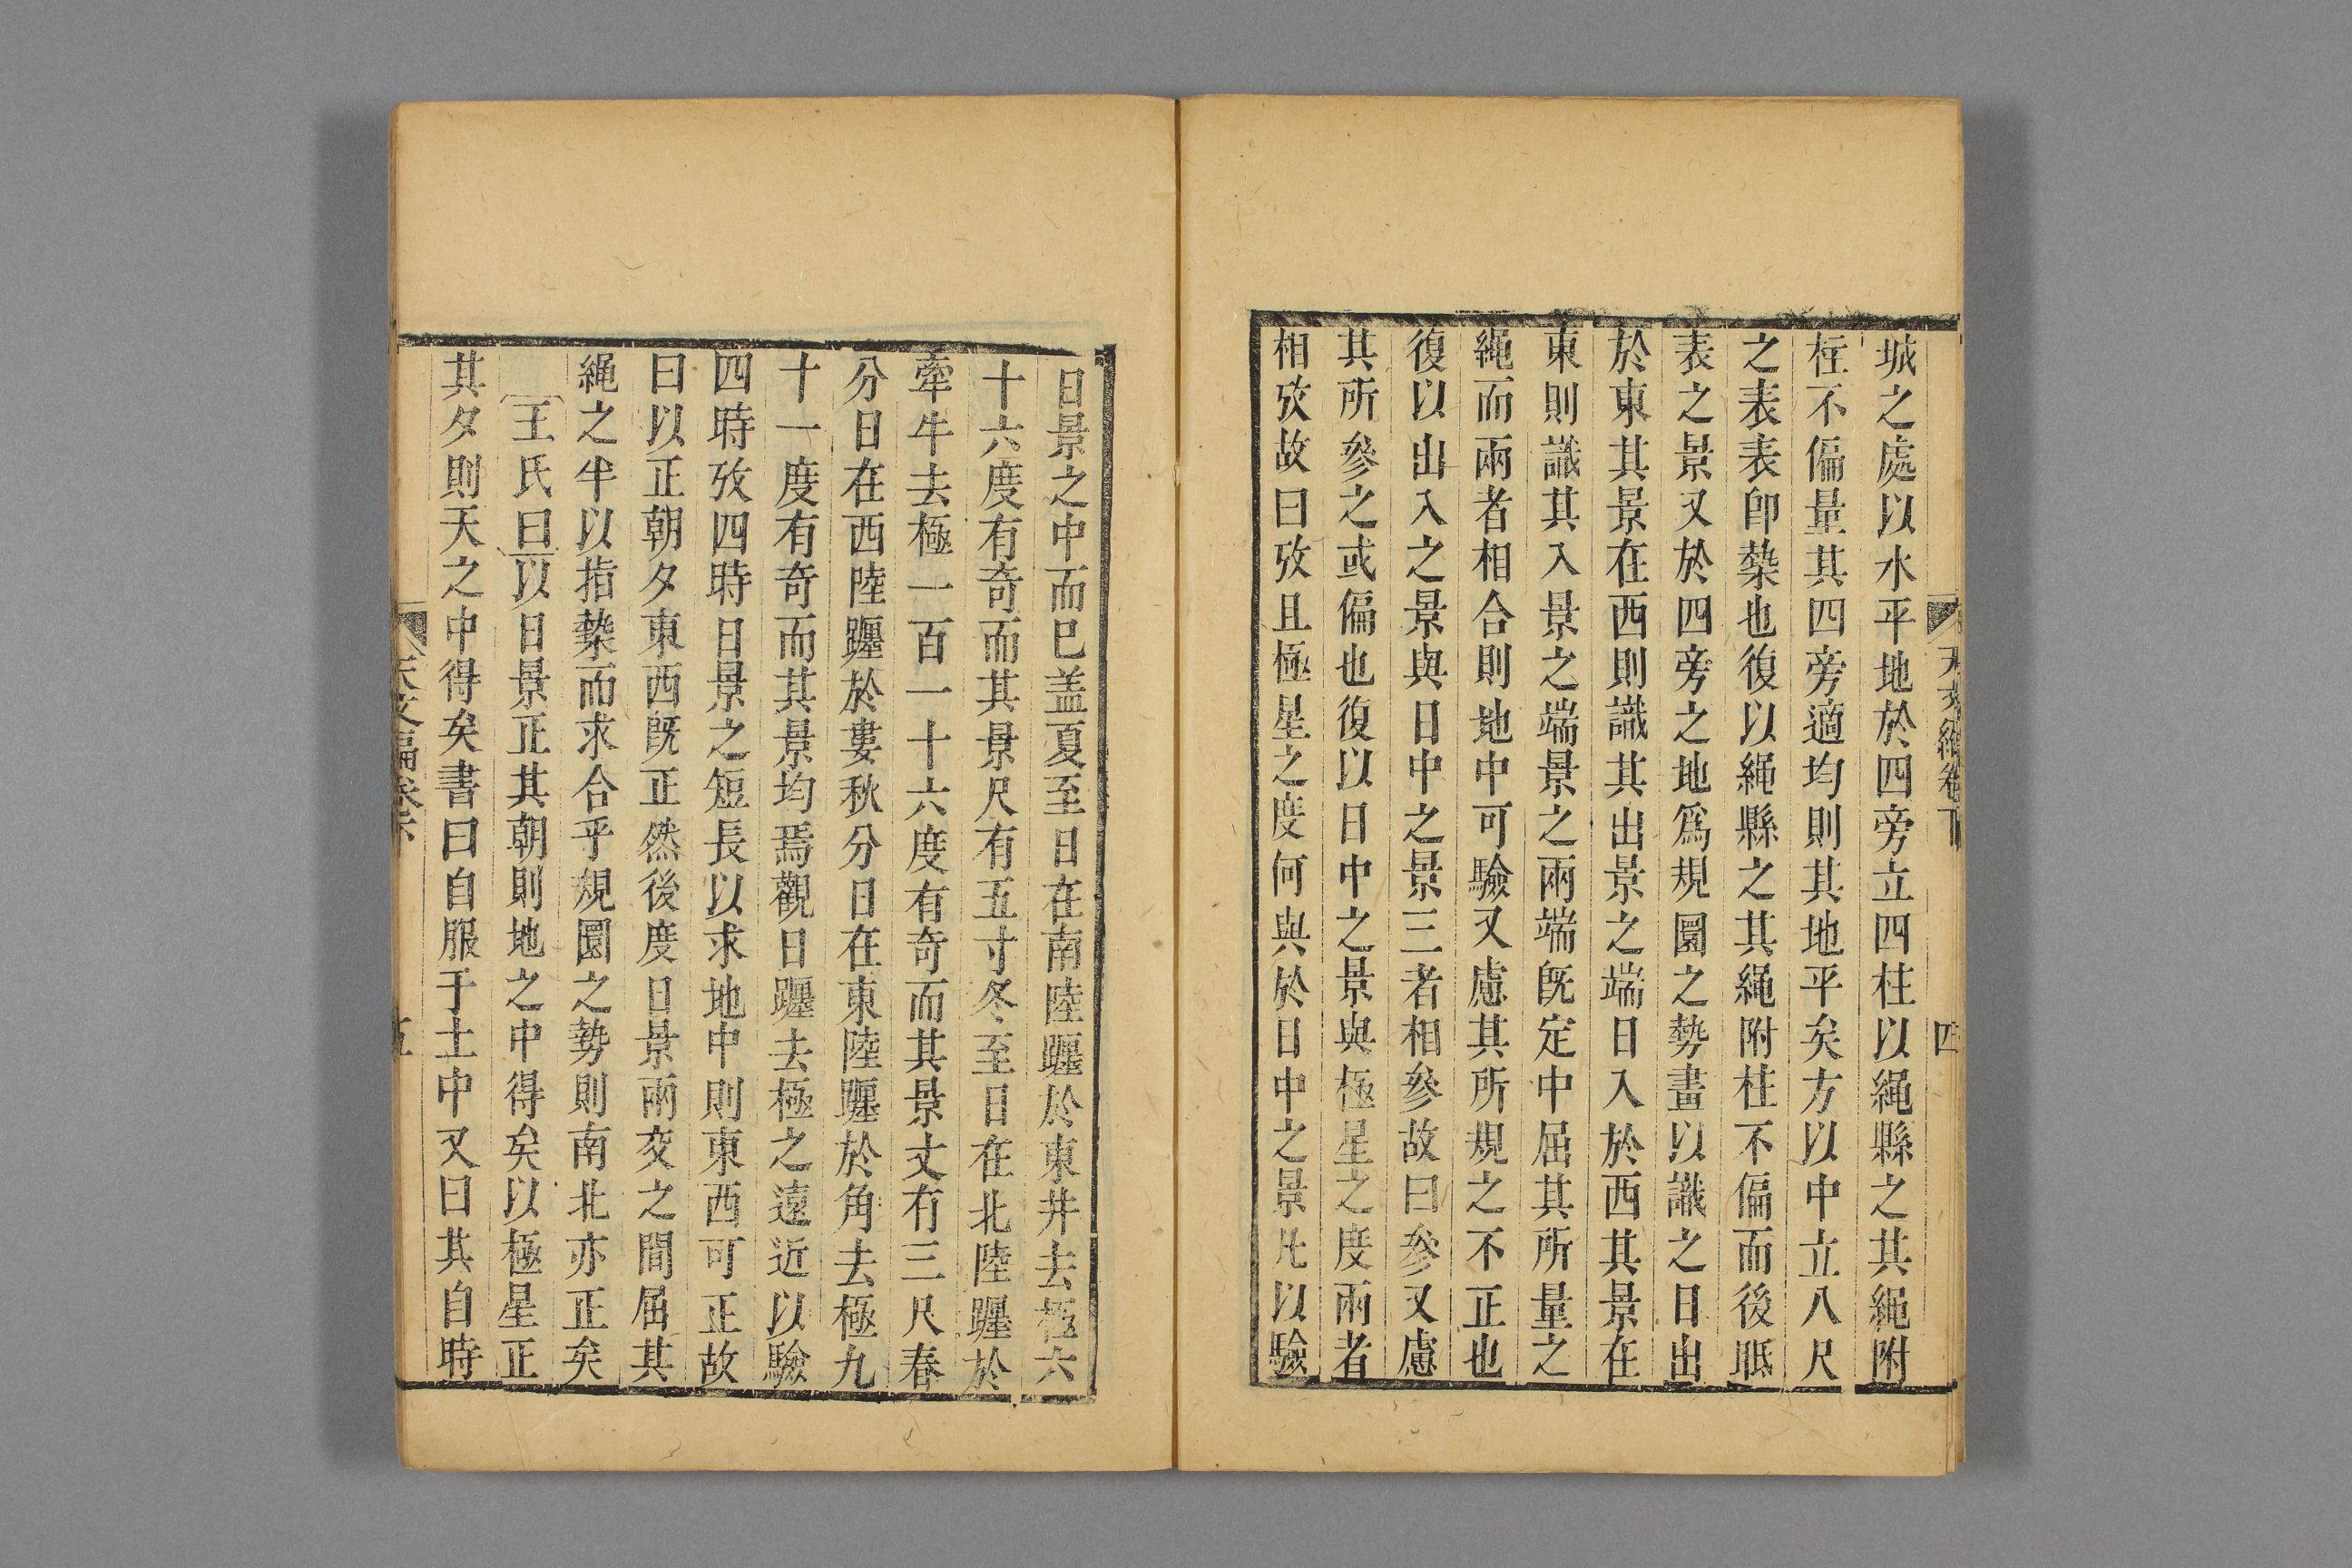 城之處以水平地於四旁立四柱以繩縣之其繩附
柱不偏量其四旁適均則其地平矣方以中立八尺
之表表卽槷也復以繩縣之其繩附柱不偏而後眂
表之景又於四旁之地爲規圜之勢畫以識之日出
於東其景在西則識其出景之端日入於西其景在
東則識其入景之端景之兩端旣定中屈其所量之
繩而兩者相合則地中可驗又慮其所規之不正也
復以出入之景與日中之景三者相參故曰參又慮
其所參之或偏也復以日中之景與極星之度兩者
相攷故曰攷且極星之度何與於日中之景凡以驗
四
日景之中而已盖夏至日在南陸躔於東井去極六
十六度有奇而其景尺有五寸冬至日在北陸躔於
牽牛去極一百一十六度有奇而其景丈有三尺春
分日在西陸躔於婁秋分日在東陸躔於角去極九
十一度有奇而其景均焉觀日躔去極之遠近以驗
四時攷四時日景之短長以求地中則東西可正故
曰以正朝夕東西旣正然後度日景兩交之間屈其
繩之半以指槷而求合乎規圜之勢則南北亦正矣
王氏曰以日景正其朝則地之中得矣以極星正
其夕則天之中得矣書曰自服于土中又曰其自時
五